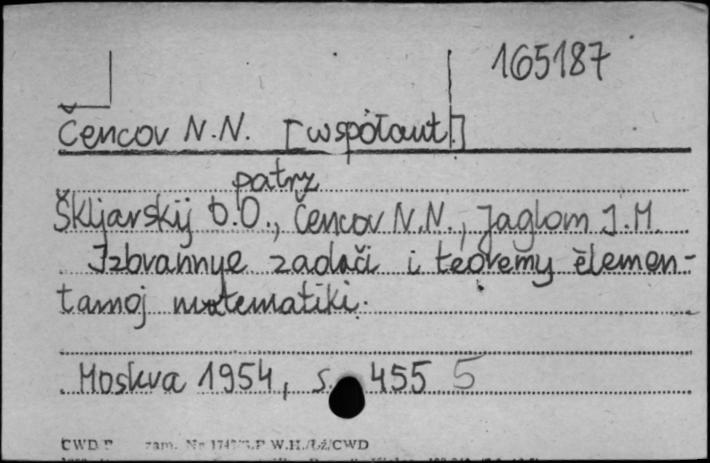 165187
Čencov N.N. [współaut.]
patrz
Škljarskij D.O., Čencov N.N., Jaglom I.M.
Izbrannye zadači i teoremy èlemen-
tarnoj matematiki.
Moskva 1954, s. 455 5
CWD zam. Nr W.H./Łż/CWD